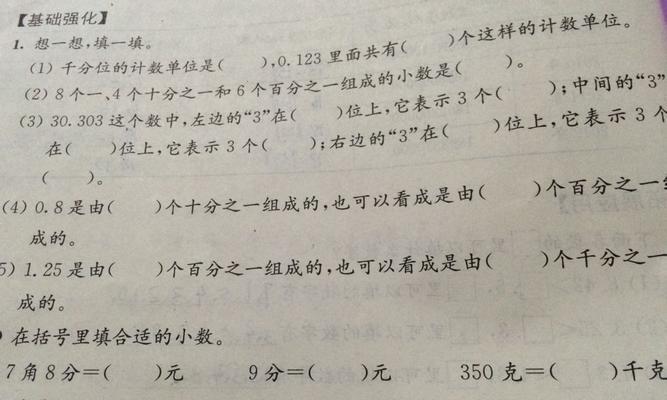 【基础强化】
1. 想一想,填一填。
(1) 千分位的计数单位是( ),0.123里面共有( )个这样的计数单位。
(2) 8个一、4个十分之一和6个百分之一组成的小数是( )。
(3) 30.303这个数中,左边的“3”在( )位上,它表示3个( );中间的“3”
在( )位上,它表示3个( );右边的“3”在( )位上,它表示3个
( )。
(4) 0.8是由( )个十分之一组成的,也可以看成是由( )个百分之一
成的。
5) 1.25是由( )个百分之一组成的,也可以看成是由( )个千分之一
成的。
在括号里填合适的小数。
7角8分=( )元 9分=( )元 350克=( )千克